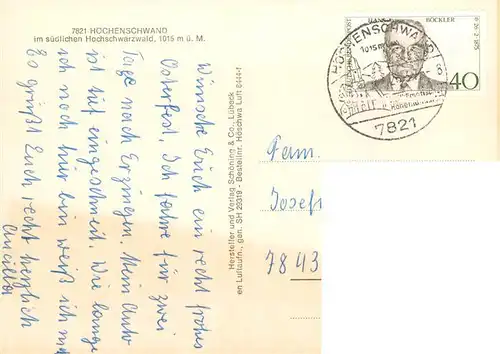 7821 HÖCHENSCHWAND
im südlichen Hochschwarzwald, 1015 m ü. M.
Wünsche Euch ein recht frohes
Osterfest. Ich fahre für zwei
Tage nach Erzingen. Mein Auto
ist tief eingeschneit. Wie lange
ich noch hier bin weiß ich nicht
Es grüßt Euch recht herzlich
Hersteller und Verlag Schöning & Co., Lübeck
en Luftaufn., gen. SH 29319 - Bestellnr. Höschwa Luft 8444-1
BÖCKLER
40
HÖCHENSCHWAND
1015 m
7821
Fam.
Josef
7843